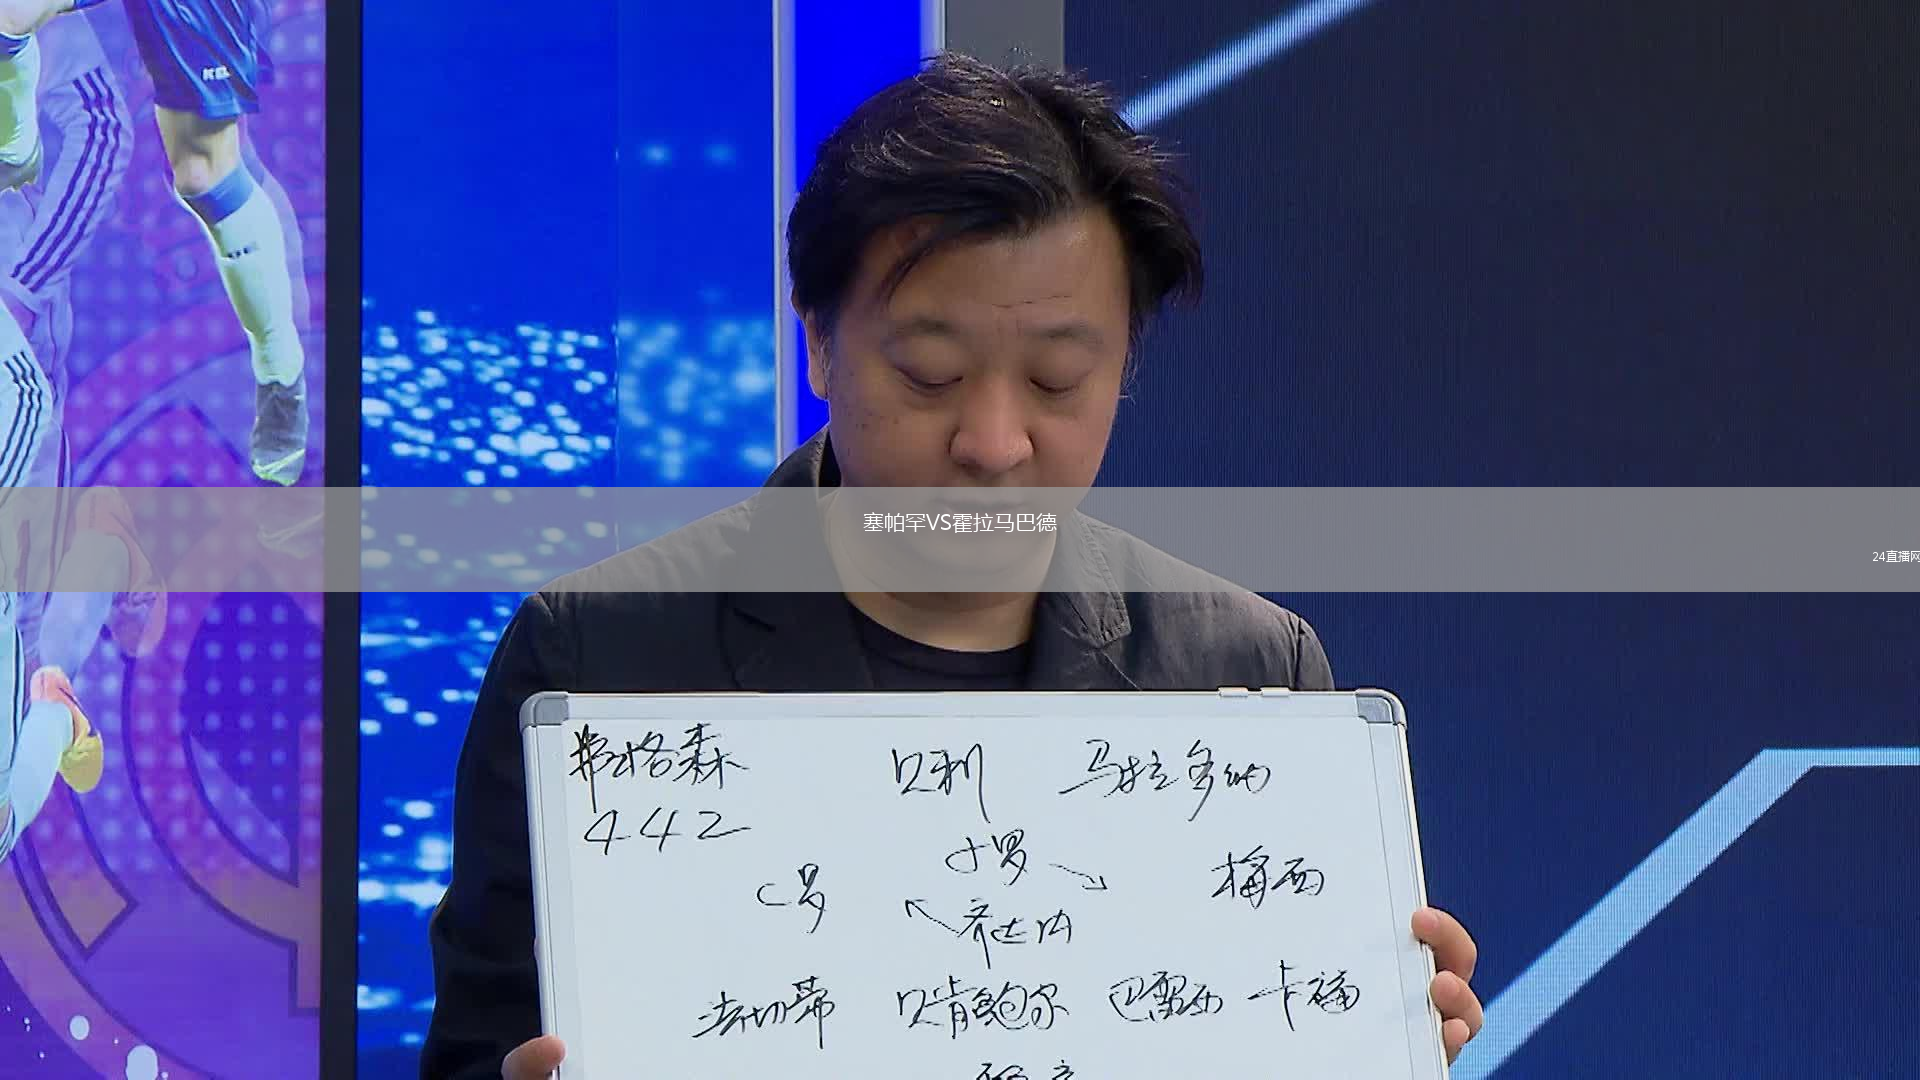 塞帕罕VS霍拉马巴德
24直播网
弗格森 贝利 马拉多纳
442
小罗
C罗 梅西
齐达内
法切蒂 贝肯鲍尔 巴雷西 卡福